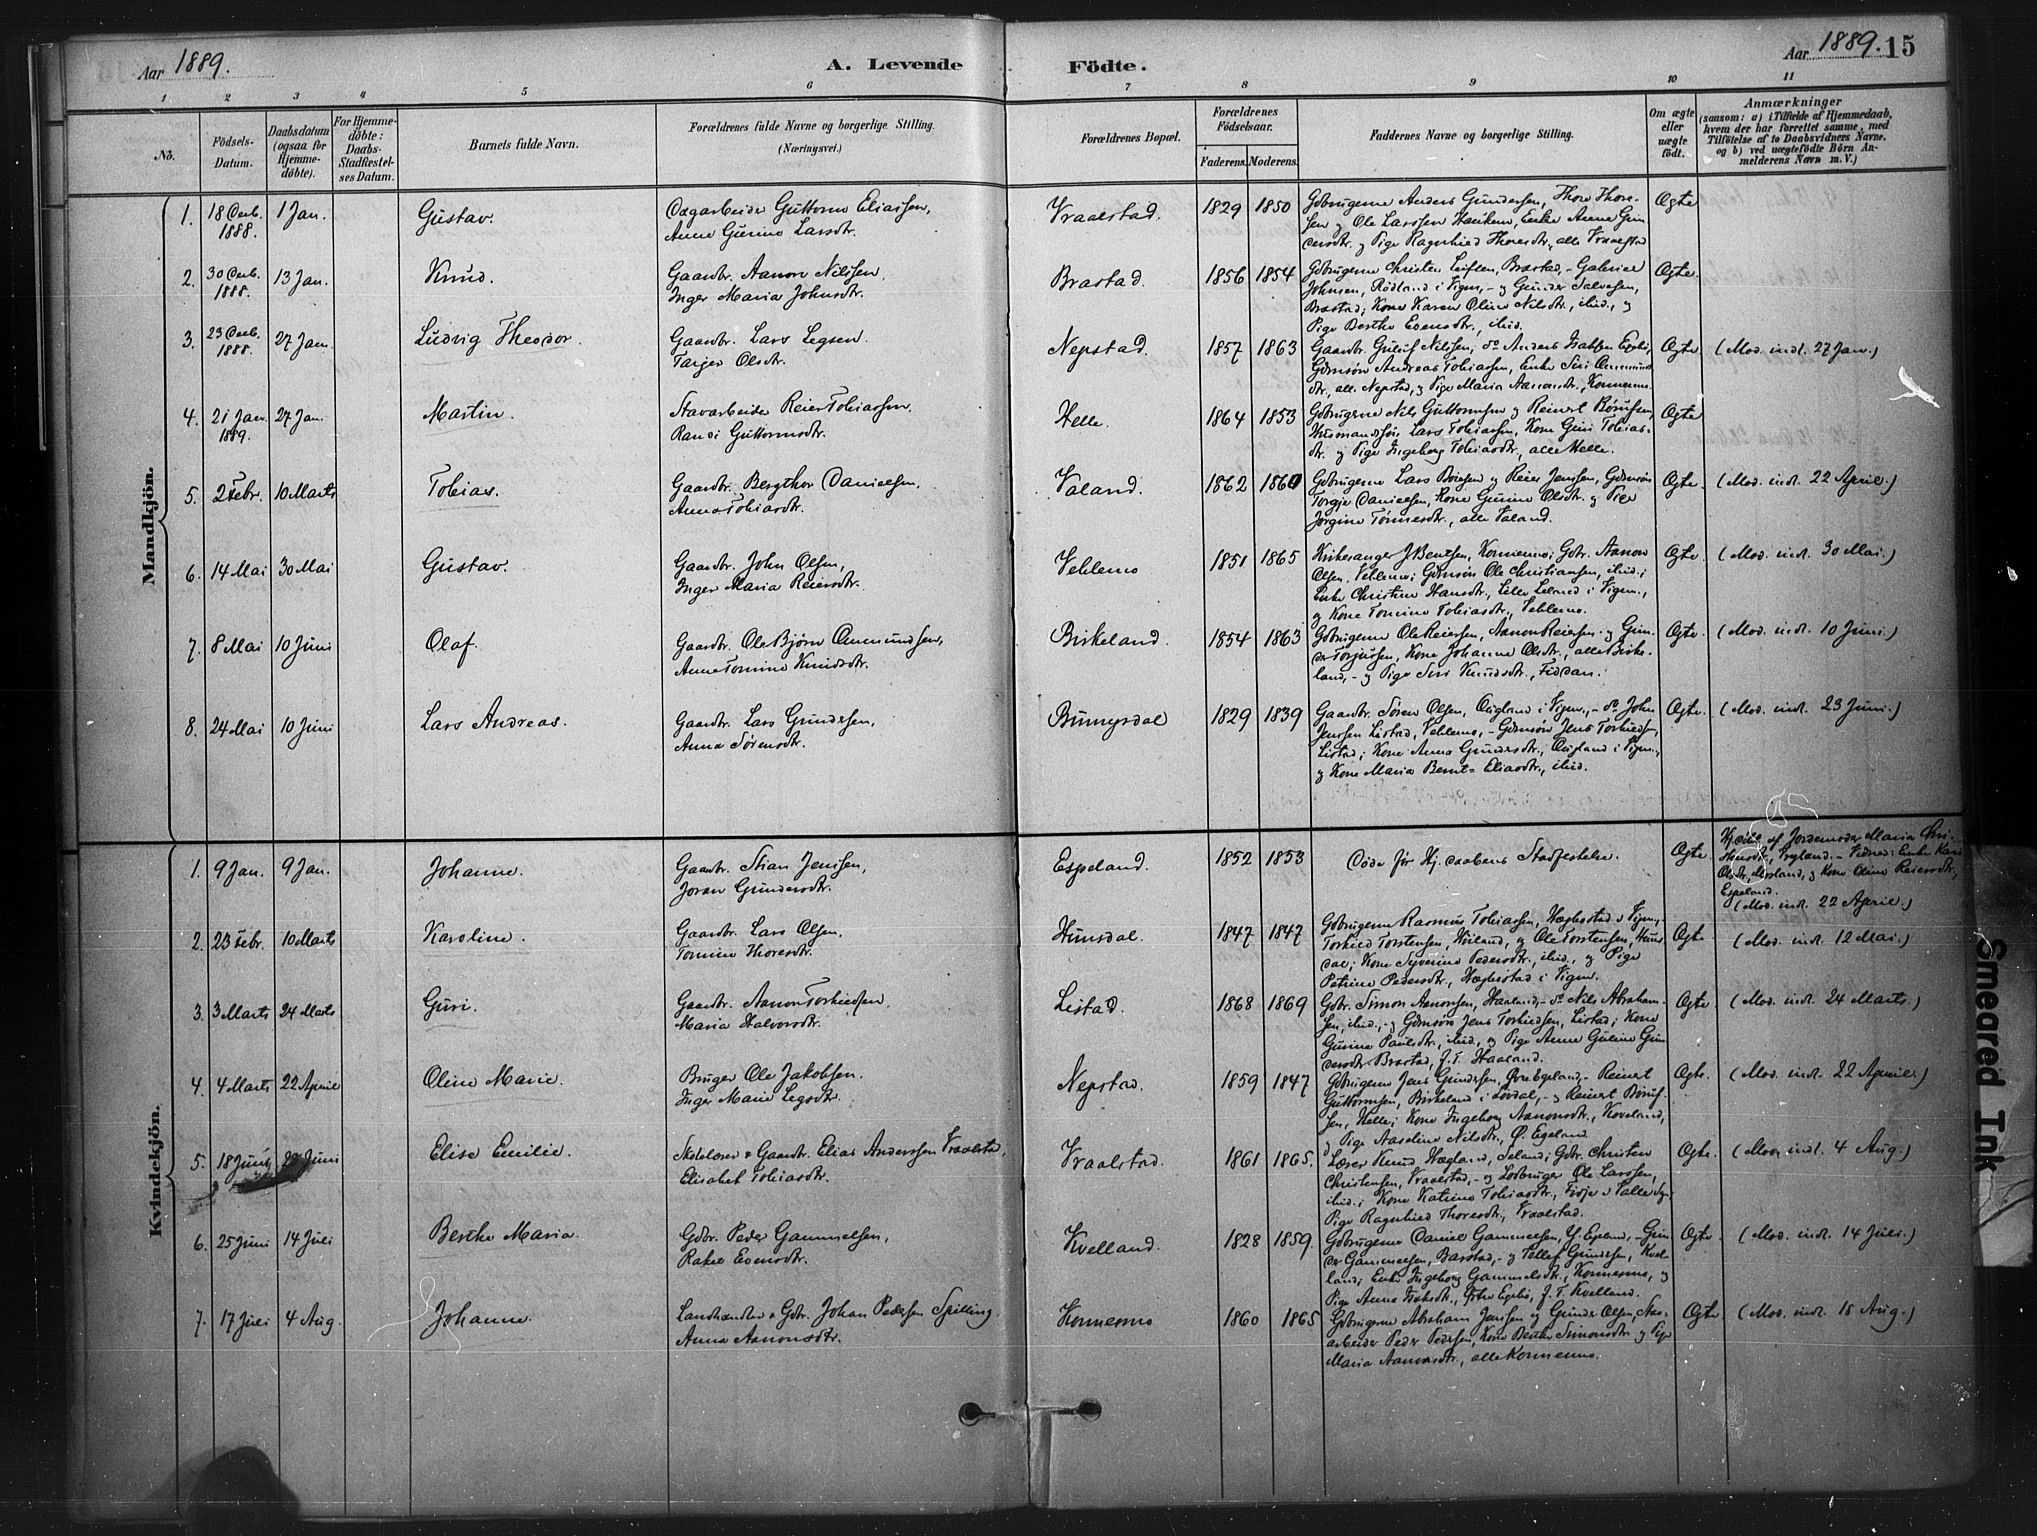 Aar 1889.
A. Levende Födte.
Aar 1889. 15
1 2 3 4 5 6 7 8 9 10 11
No.
Födsels-Datum.
Daabsdatum (ogsaa for Hjemme-döbte).
For Hjemme-döbte: Daabs-Stadfæstel-ses Datum.
Barnets fulde Navn.
Forældrenes fulde Navne og borgerlige Stilling.
(Næringsvei.)
Forældrenes Bopæl.
Forældrenes Födselsaar.
Faderens. Moderens.
Faddernes Navne og borgerlige Stilling.
Om ægte eller uægte födt.
Anmærkninger
(saasom: a) i Tilfælde af Hjemmedaab,
hvem der har forrettet samme, med
Tilföielse af to Daabsvidners Navne.
og b) ved uægtefödte Börn An-
melderens Navn m. V.)
Mandkjön.
1. 18 Decb. 1888. 1 Jan. Gustav. Guttorm Eliassen, Anne Gurine Larsdtr. Vraalstad. 1829 1850 Gdbrugerne Anders Gundersen, Thore Thore-
sen og Ole Larssen, Enke Anne Gun-
dersdtr. og Pige Ragnhild Thoresdtr., alle Vraalstad
Ægte
2. 30 Decb. 1888. 13 Jan. Knud. Gaardbr. Aanon Nilssen, Inger Maria Johnsdtr. Brastad. 1856 1854 Gdbrugerne Christen Leifsen, Brastad, - Gabriel
Johnsen, Rödland i Vigm., - og Gunder Salvesen,
Brastad; Kone Karen Oline Nilsdtr., ibid., og
Pige Berthe Evensdtr., ibid.
Ægte.
3. 23 Decb. 1888. 27 Jan. Ludvig Theodor. Gaardbr. Lars Legsen. Tarjer Olsdtr. Nepstad. 1857 1863 Gaardbr. Nilssen, do Anders
Gdmsön Andreas Tobiassen, Enke Siri
dtr., alle Nepstad, og Pige Maria Aanondtr., Konnesmo.
Ægte. (Mod. indl. 27 Jan.)
4. 21 Jan. 1889. 27 Jan. Martin. Stavarbeider Reier Tobiassen, Guttormsdtr. Helle. 1864 1853 Gdbrugerne Nils Guttormsen og Reinert Börufsen,
Husmandssön Lars Tobiassen, Kone Guri Tobias-
dtr. og Pige Ingeborg Tobiasdtr., alle Helle.
Ægte
5. 2 Febr. 10 Marts Tobias. Gaardbr. Bergthor Danielsen, Anna Tobiasdtr. Valand. 1862 1860 Gdbrugerne Lars Boiesen og Reier Jenssen, Gdmsön
Torgje Danielsen, Kone Gurine Olsdtr. og Pige
Jörgine Tönnesdtr., alle Valand.
Ægte. (Mod. indl. 22 April.)
6. 14 Mai 30 Mai Gustav. Gaardbr. John Olsen, Inger Maria Reiersdtr. Vehlemo 1851 1865 Kirkesanger J. Bentsen, Konnesmo; Gdbr. Aanon
Olsen, Vehlemo; Gdmsön Ole Christiansen, ibid.;
Enke Christine Hansdtr., Lille Leland i Vigm.,
og Kone Tomine Tobiasdtr., Vehlemo.
Ægte. (Mod. indl. 30 Mai.)
7. 8 Mai 10 Juni Olaf. Gaardbr. Ole Bjørn Ommundsen, Anne Tomine Knudsdtr. Birkeland. 1854 1863 Gdbrugerne Ole Reiersen, Aanon Reiersen og Gun-
der Torjussen, Kone Johanne Olsdtr., alle Birke-
land, - og Pige Siri Knudsdtr., Fiddan.
Ægte. (Mod. indl. 10 Juni.)
8. 24 Mai 10 Juni Lars Andreas. Gaardbr. Lars Gundersen, Anna Sörensdtr. 1829 1839 Gaardbr. Sören Olsen, Augland i Vigm., - do John
Jenssen Listad, Vehlemo, - Gdmsön Jens Torkildsen,
Listad; Kone Anna Gundersdtr., Augland i Vigm.,
og Kone Maria Bernt. Eliasdtr., ibid.
Ægte. (Mod. indl. 23 Juni.)
Kvindekjön.
1. 9 Jan. 9 Jan. Johanne. Gaardbr. Stian Jenssen, Joran Gundersdtr. Espeland. 1852 1853 Döde för Hj. daabens Stadfæstelse. Ægte. Hj. döbt af Jordemoder Maria
Vidner: Enke Kari
Olsdtr., og Kone Oline Reiersdtr.,
Espeland.
(Mod. indl. 22 April.)
2. 23 Febr. 10 Marts Karoline. Gaardbr. Lars Olsen, Tomine Thoresdtr. Hunsdal. 1847 1847 Gdbrugerne Rasmus Tobiassen, Hægbostad i Vigm.,
Torkild Torstensen, Höiland, og Ole Torstensen, Huns-
dal; Kone Syverine Pedersdtr., ibid., og Pige
Petrine Pedersdtr., Hægbostad i Vigm.
Ægte. (Mod. indl. 12 Mai.)
3. 3 Marts 24 Marts Guri. Gaardbr. Aanon Torkildsen, Maria Halvorsdtr. Listad. 1868 1869 Gdbr. Simon Aanonsen, Haaland, - do Nils Abraham-
sen, ibid., - og Gdmsön Jens Torkildsen, Listad; Kone
Gurine Paulsdtr., ibid., og Pige Anne Guline Gun-
dersdtr. Brastad, f. T. Haaland.
Ægte. (Mod. indl. 24 Marts.)
4. 4 Marts 22 April Oline Marie. Bruger Ole Jakobsen. Inger Marie Legsdtr. Nepstad. 1859 1847 Gdbrugerne Jens Gundersen, Øvre Egeland, - Reinert
Guttormsen, Birkeland i Lövdal, - og Reinert Böruf-
sen, Helle; Kone Ingeborg Aanonsdtr., Koveland,
og Pige Aaseline Nilsdtr., Ø. Egeland.
Ægte. (Mod. indl. 22 April.)
5. 18 Juni Juni Elise Emilie. Skolelærer & Gaardbr. Elias Anderssen Vraalstad, Elisabet Tobiasdtr. Vraalstad. 1861 1865. Lærer Knud Hægland, Seland; Gdbr. Christen
Christensen, Vraalstad, - og Lodbruger Ole Larssen,
ibid.; Kone Katrine Tobiasdtr.,
Pige Ragnhild Thoresdtr., Vraalstad.
Ægte. (Mod. indl. 4 Aug.)
6. 25 Juni 14 Juli Berthe Maria. Gdbr. Peder Gammelsen, Rakel Evensdtr. Kvelland. 1828 1859. Gdbrugerne Daniel Gammelsen, Y. Egeland, - Gun-
der Gammelsen, Barstad, - og Tellef Gundersen, Kvel-
land; Enke Ingeborg Gammelsdtr., Konnesmo, og
Pige Anna f. T. Kvelland.
Ægte (Mod. indl. 14 Juli.)
7. 17 Juli 4 Aug. Johanne. Landhandler & Gdbr. Johan Pedersen Spilling, Anna Aanonsdtr. Konnesmo 1860 1865 Gdbrugerne Abraham Jenssen og Gunder Olsen,
arbeider Peder Pedersen, Kone Berthe Simonsdtr. og Pige
Maria Aanonsdtr., alle Konnesmo.
Ægte. (Mod. indl. 15 Aug.)
Smeared Ink